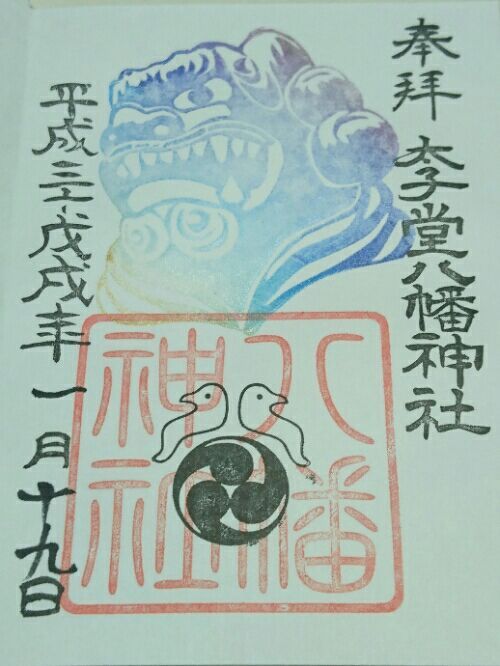 奉拝 太子堂八幡神社
八幡
神社
平成三十戊戌年 一月十九日